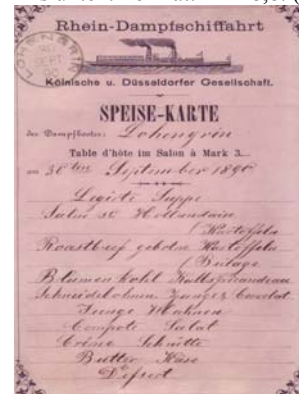 Rhein-Dampfschiffahrt
LOHENGRIN
SEPT
Kölnische u. Düsseldorfer Gesellschaft.
SPEISE-KARTE
des Dampfbootes: Lohengrin
Table d'hôte im Salon à Mark 3...
am 30ten September 1890
Legirte Suppe
Hollandaise
Kartoffeln
Roastbeef gebratne Kartoffeln
Beilage
Blumenkohl Kalbsfricandeau
Schneidebohnen Zunge & Cervelat
Junge Hahnen
Compote Salat
Crême Schnitte
Butter Käse
Desert